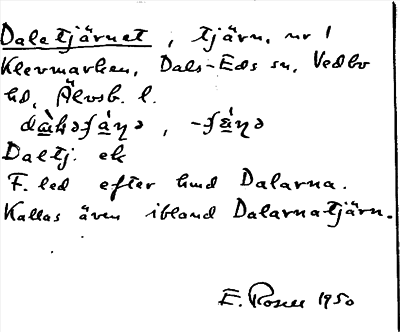 Daletjärnet, tjärn, nr 1
Klevmarken, Dals-Eds sn, Vedbo
hd, Älvsb. l.
Daltj. ek
F. led efter hmd Dalarna.
Kallas även ibland Dalarnatjärn.
E. Rosell 1950